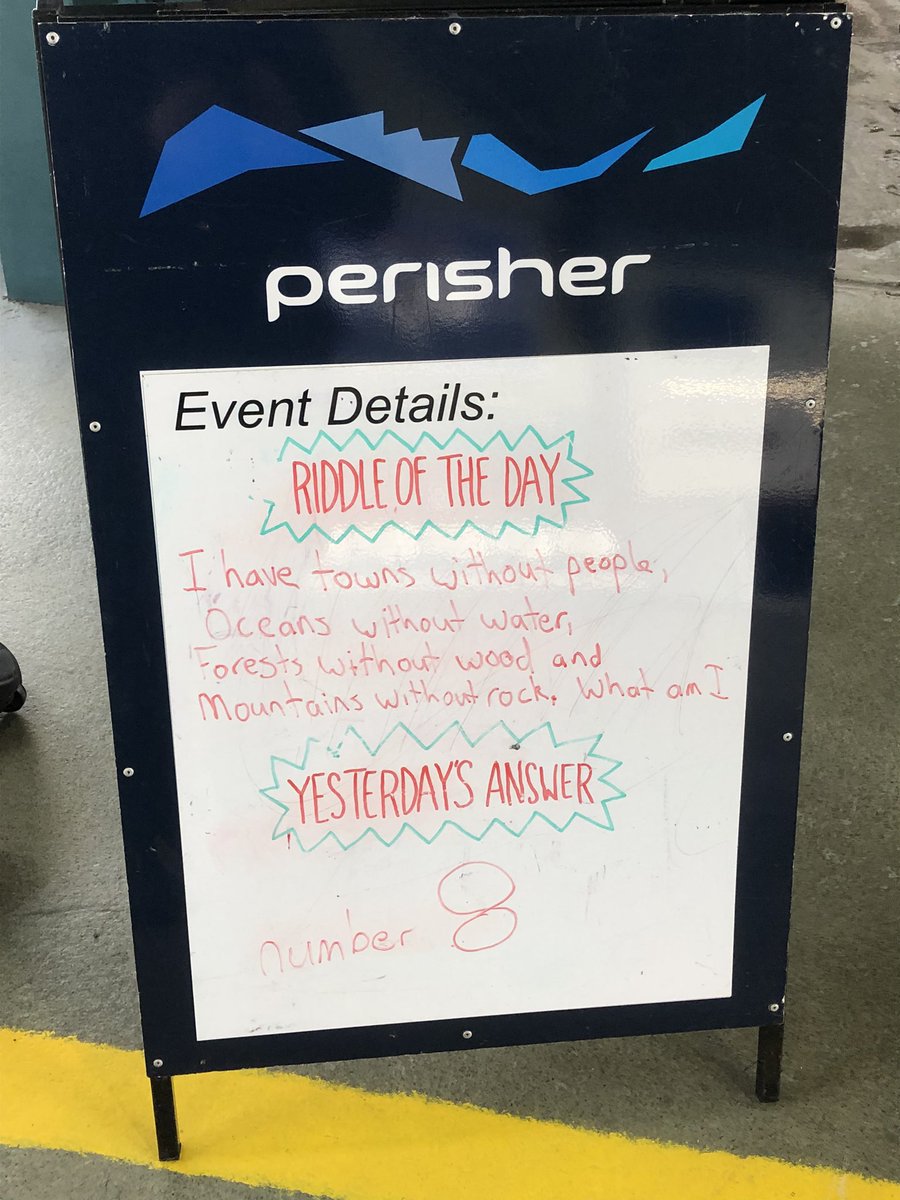 perisher
Event Details:
RIDDLE OF THE DAY
I have towns without people,
Oceans without water,
Forests without wood and
Mountains without rock. What am I
YESTERDAY'S ANSWER
number 8